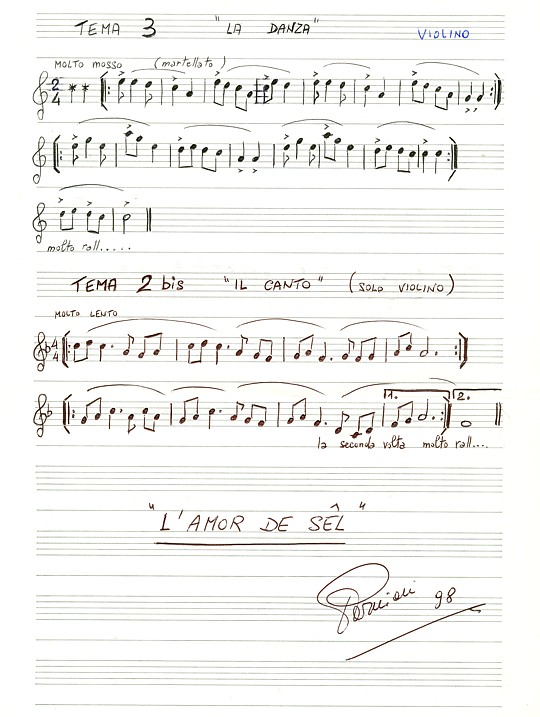 TEMA 3 "LA DANZA" VIOLINO
MOLTO MOSSO (martellato)
2
4
molto rall.....
TEMA 2 bis "IL CANTO" (SOLO VIOLINO)
MOLTO LENTO
4
4
1. 2.
la seconda volta molto rall....
"L'AMOR DE SÊL"
98